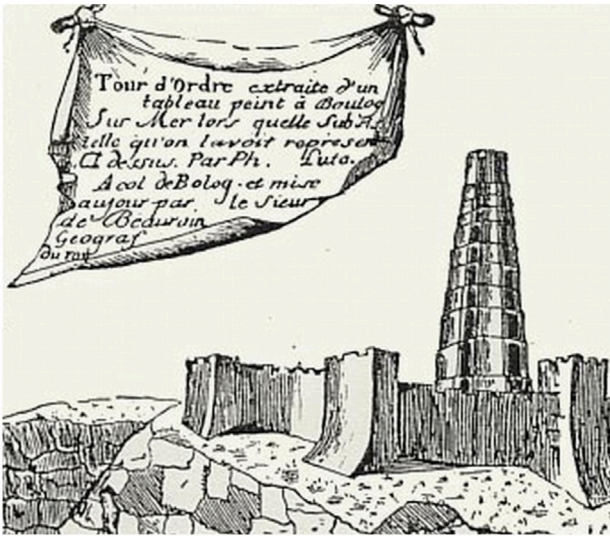 Tour d'Ordre extraite d'un
tableau peint à Boulog
Sur Mer lors quelle Subsi
telle qu'on l'avoit represen
Ci dessus. Par Ph. Luto.
A col de Bolog. et mise
aujour par le Sieur
de Beaurain
Geograf
du roy